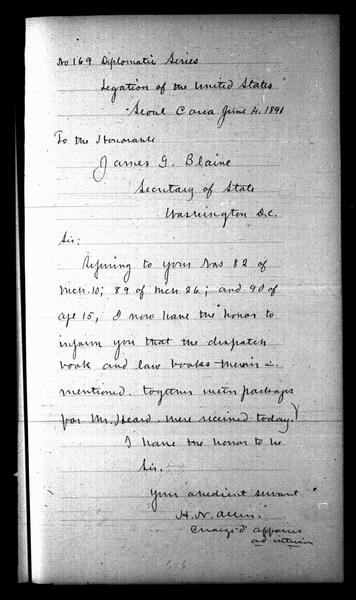 No 169 Diplomatic Series
Legation of the United States
Seoul Corea June 4, 1891
To the Honorable
James G. Blaine
Secretary of State
Washington D.C.
Sir:
Refering to your Nos 82 of
Mch. 10; 89 of Mch 26; and 90 of
Apl 15, I now have the honor to
inform you that the dispatch
book and law books therein
mentioned together with packages
for Mr. Heard, were received today.
I have the honor to be
Sir,
Your obedient servant
H. N. Allen
Chargé d'affaires
ad interim